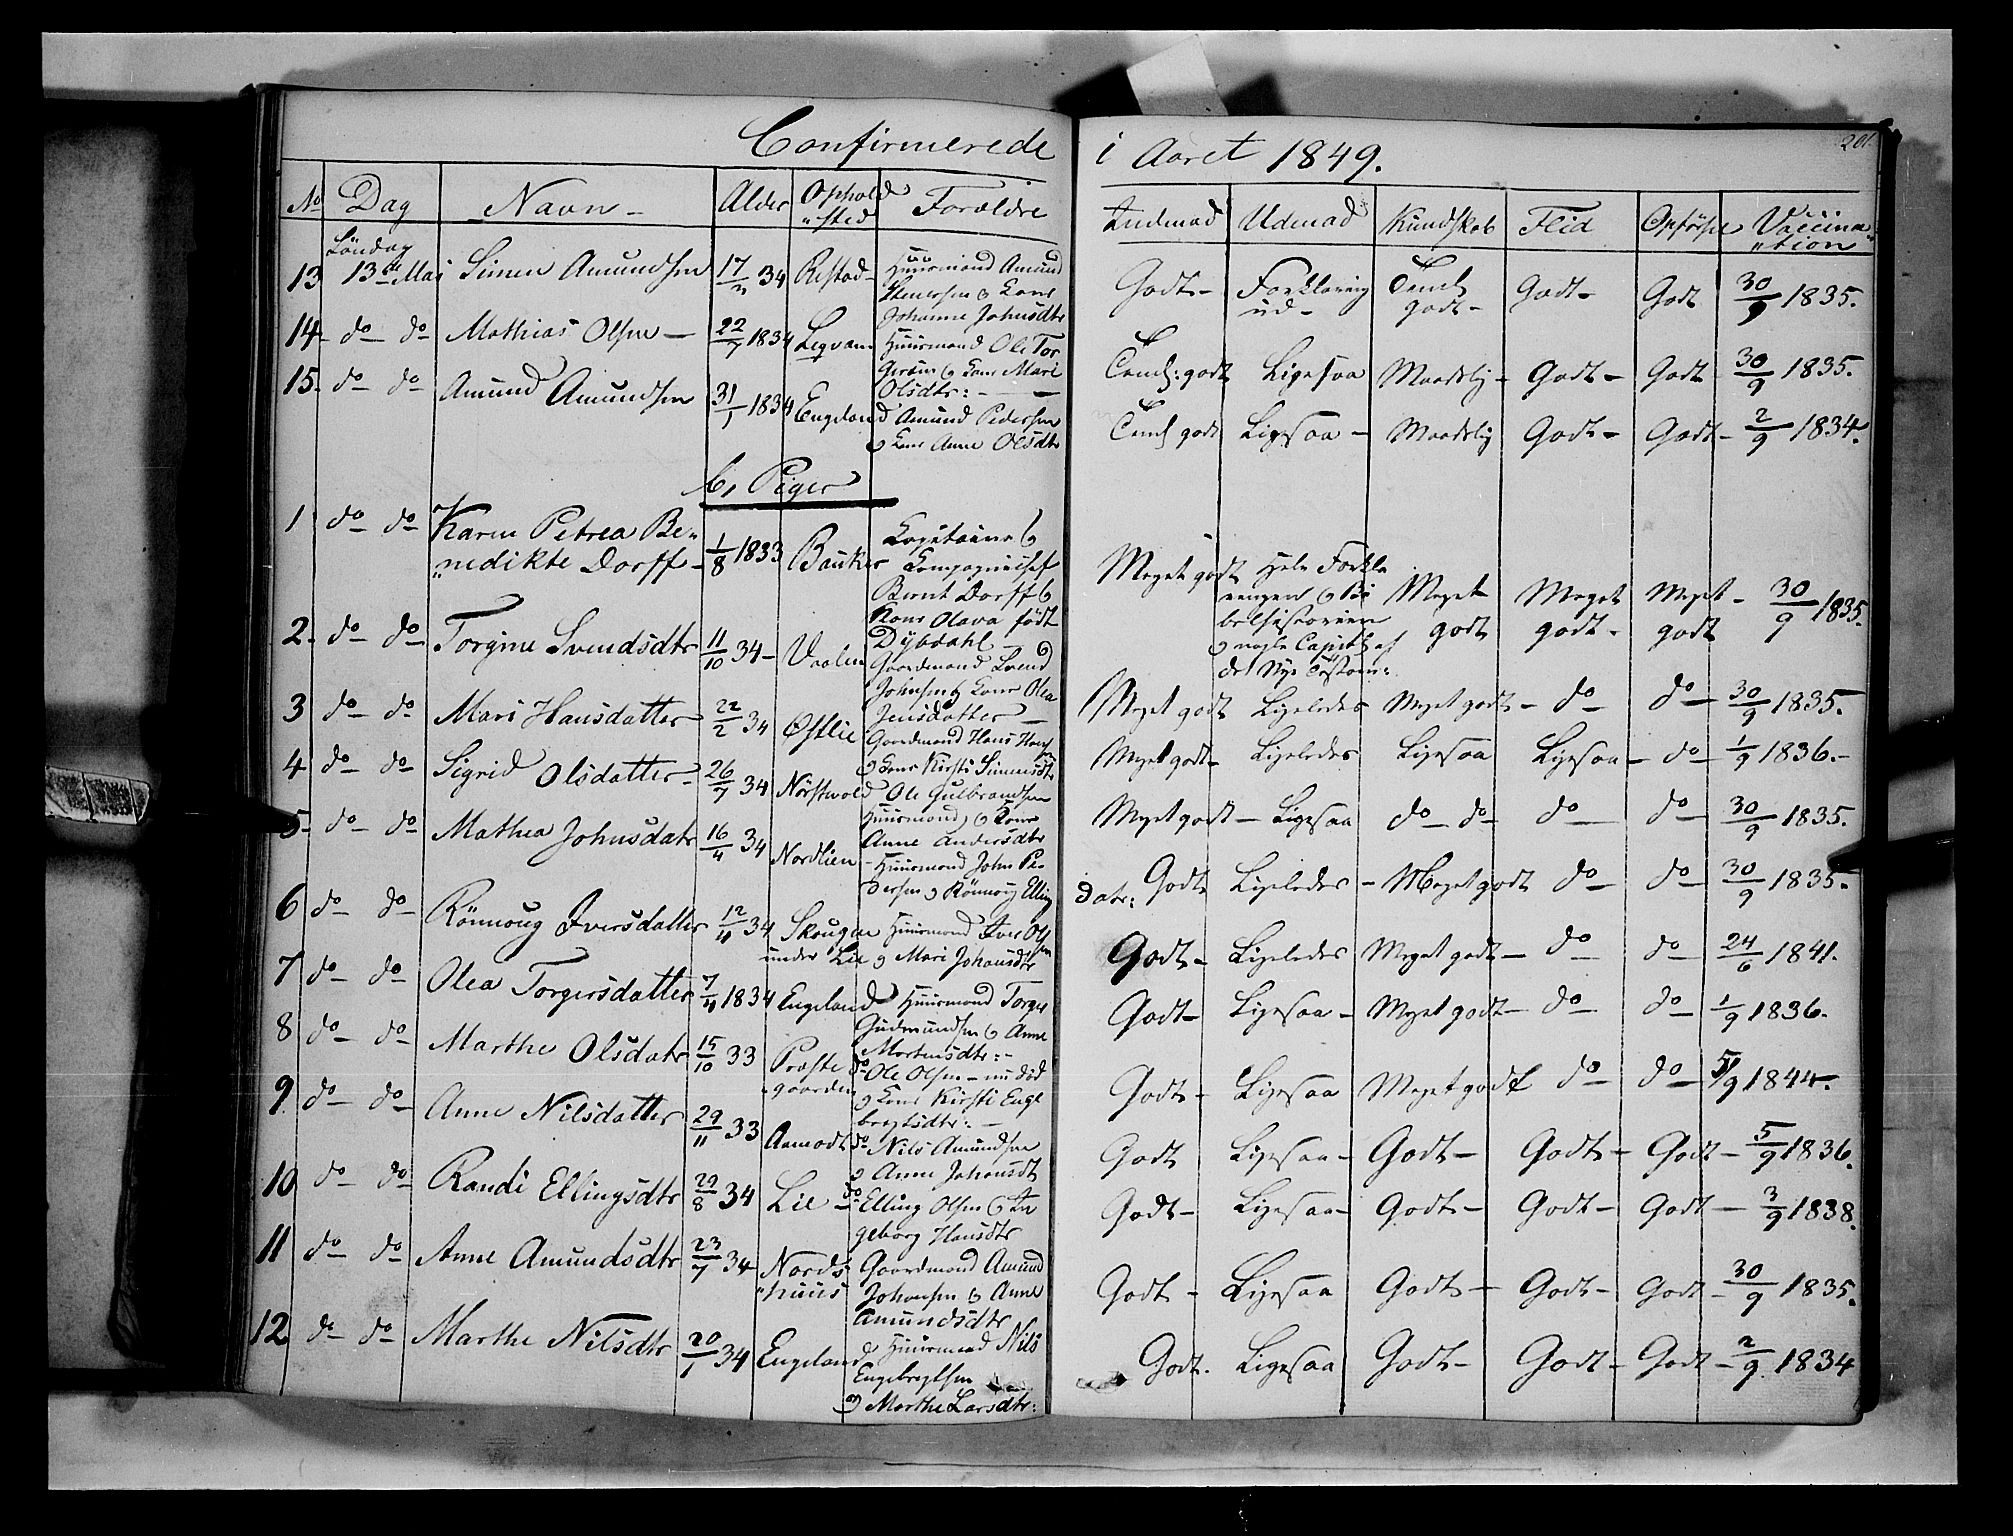 Confirmerede i Aaret 1849.
201
No Dag Navn Alder Ophold Forældre Indenad Udenad Kundskab Flid Opførsel Vaccina
"sted "tion
Söndag
13 13de Mai Simen Amundsen 17/3 34 Huusmand Amund
Stenersen og Kone
Johanne Johnsdtr
Godt Forklaring Temel. Godt Godt 30/9 1835.
ud godt
14 do do Mathias Olsen 22/7 1834 Leqvam Huusmand Ole Tor
og Kone Mari
Olsdtr:
Temel: godt Ligesaa Maadelig Godt Godt 30/9 1835.
15. do do Amund Amundsen 31/1 1834 Engeland Amund Pedersen
og Kone Anne Olsdtr
Temel godt Ligesaa Maadelig Godt Godt 2/9 1834.
b, Piger
1 do do Karen Petrea Be
"nedikte Dorff 1/8 1833 Bauker Capitaine og
Compagniechef
Bernt Dorff og
Kone Olava født
Dybdahl
Meget godt Hele Forkla
ringen og Bi
belhistorien
og nogle Capitl af
det Nye Testam:
Meget godt Meget godt Meget godt 30/9 1835.
2. do do Torgine Svendsdtr 11/10 34 Vaalen Gaardmand Svend
Johnsen og Kone Olea
Jensdatter
Meget godt Ligeledes Meget godt do do 30/9 1835.
3 do do Mari Hansdatter 22/2 34 Østlie Gaardmand Hans Hansen
og Kone Kirsti Simensdtr
Meget godt Ligeledes Ligesaa Ligesaa do 1/9 1836.
4 do do Sigrid Olsdatter 26/7 34 Nörstevold Ole Gulbrandsen
Huusmand, og Kone
Anne Andersdtr
Meget godt Ligesaa do do do do 30/9 1835.
5 do do Mathea Johnsdatr 16/4 34 Nordlien Huusmand John Pe
dersen og Rönnoug Elling
datr:
Godt Ligeledes Meget godt do do 30/9 1835.
6 do do Rönnoug Iversdatter 12/11 34 Skougen Huusmand Iver Olsen
under Lie og Mari Johansdtr
Godt Ligeledes Meget godt do do 24/6 1841.
7 do do Olea Torgersdatter 7/4 1834 Engeland Huusmand Torger
Gudmundsen og Anne
Mortensdtr:
Godt Ligesaa Meget godt do do 1/9 1836.
8 do do Marthe Olsdatr 15/10 33 Præste do Ole Olsen nu død
"gaarden og Kone Kirsti Enge
bregtsdtr:
Godt Ligesaa Meget godt do do 5/9 1844.
9 do do Anne Nilsdatter 29/11 33 Aamodt do Nils Amundsen
og Anne Johansdt
Godt Ligesaa Godt Godt Godt 5/9 1836.
10 do do Randi Ellingsdtr 29/8 34 Lie do Elling Olsen og In
geborg Hansdtr
Godt Ligesaa Godt Godt Godt 3/9 1838.
11 do do Anne Amundsdtr 23/7 34 Nords Gaardmand Amund
"huus Johansen og Anne
Amundsdtr
Godt Ligesaa Godt Godt Godt 30/9 1835.
12 do do Marthe Nilsdtr 20/1 34 Engeland Huusmand Nils
Engebregtsen
og Marthe Larsdtr:
Godt Ligesaa Godt Godt Godt 2/9 1834